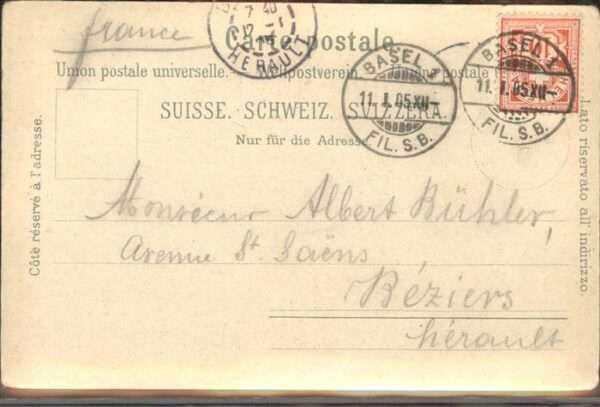 france
Carte postale
Union postale universelle. Weltpostverein.
SUISSE. SCHWEIZ. SVIZZERA.
Nur für die Adresse
Côté réservé à l'adresse.
Lato riservato all' indirizzo.
HERAULT
BASEL 1
11. I. 05 XII
FIL. S. B.
BASEL 1
11. I. 05 XII
FIL. S. B.
Monsieur Albert Bühler,
Avenue St. Saëns
Béziers
hérault